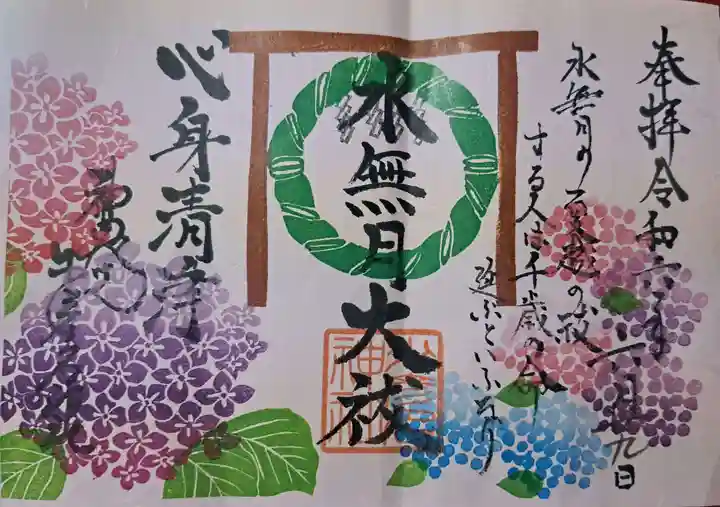 奉拝令和六年六月廿九日
水無月の夏越の祓
する人は千歳の命
延ぶといふなり
水無月大祓
心身清浄
神社